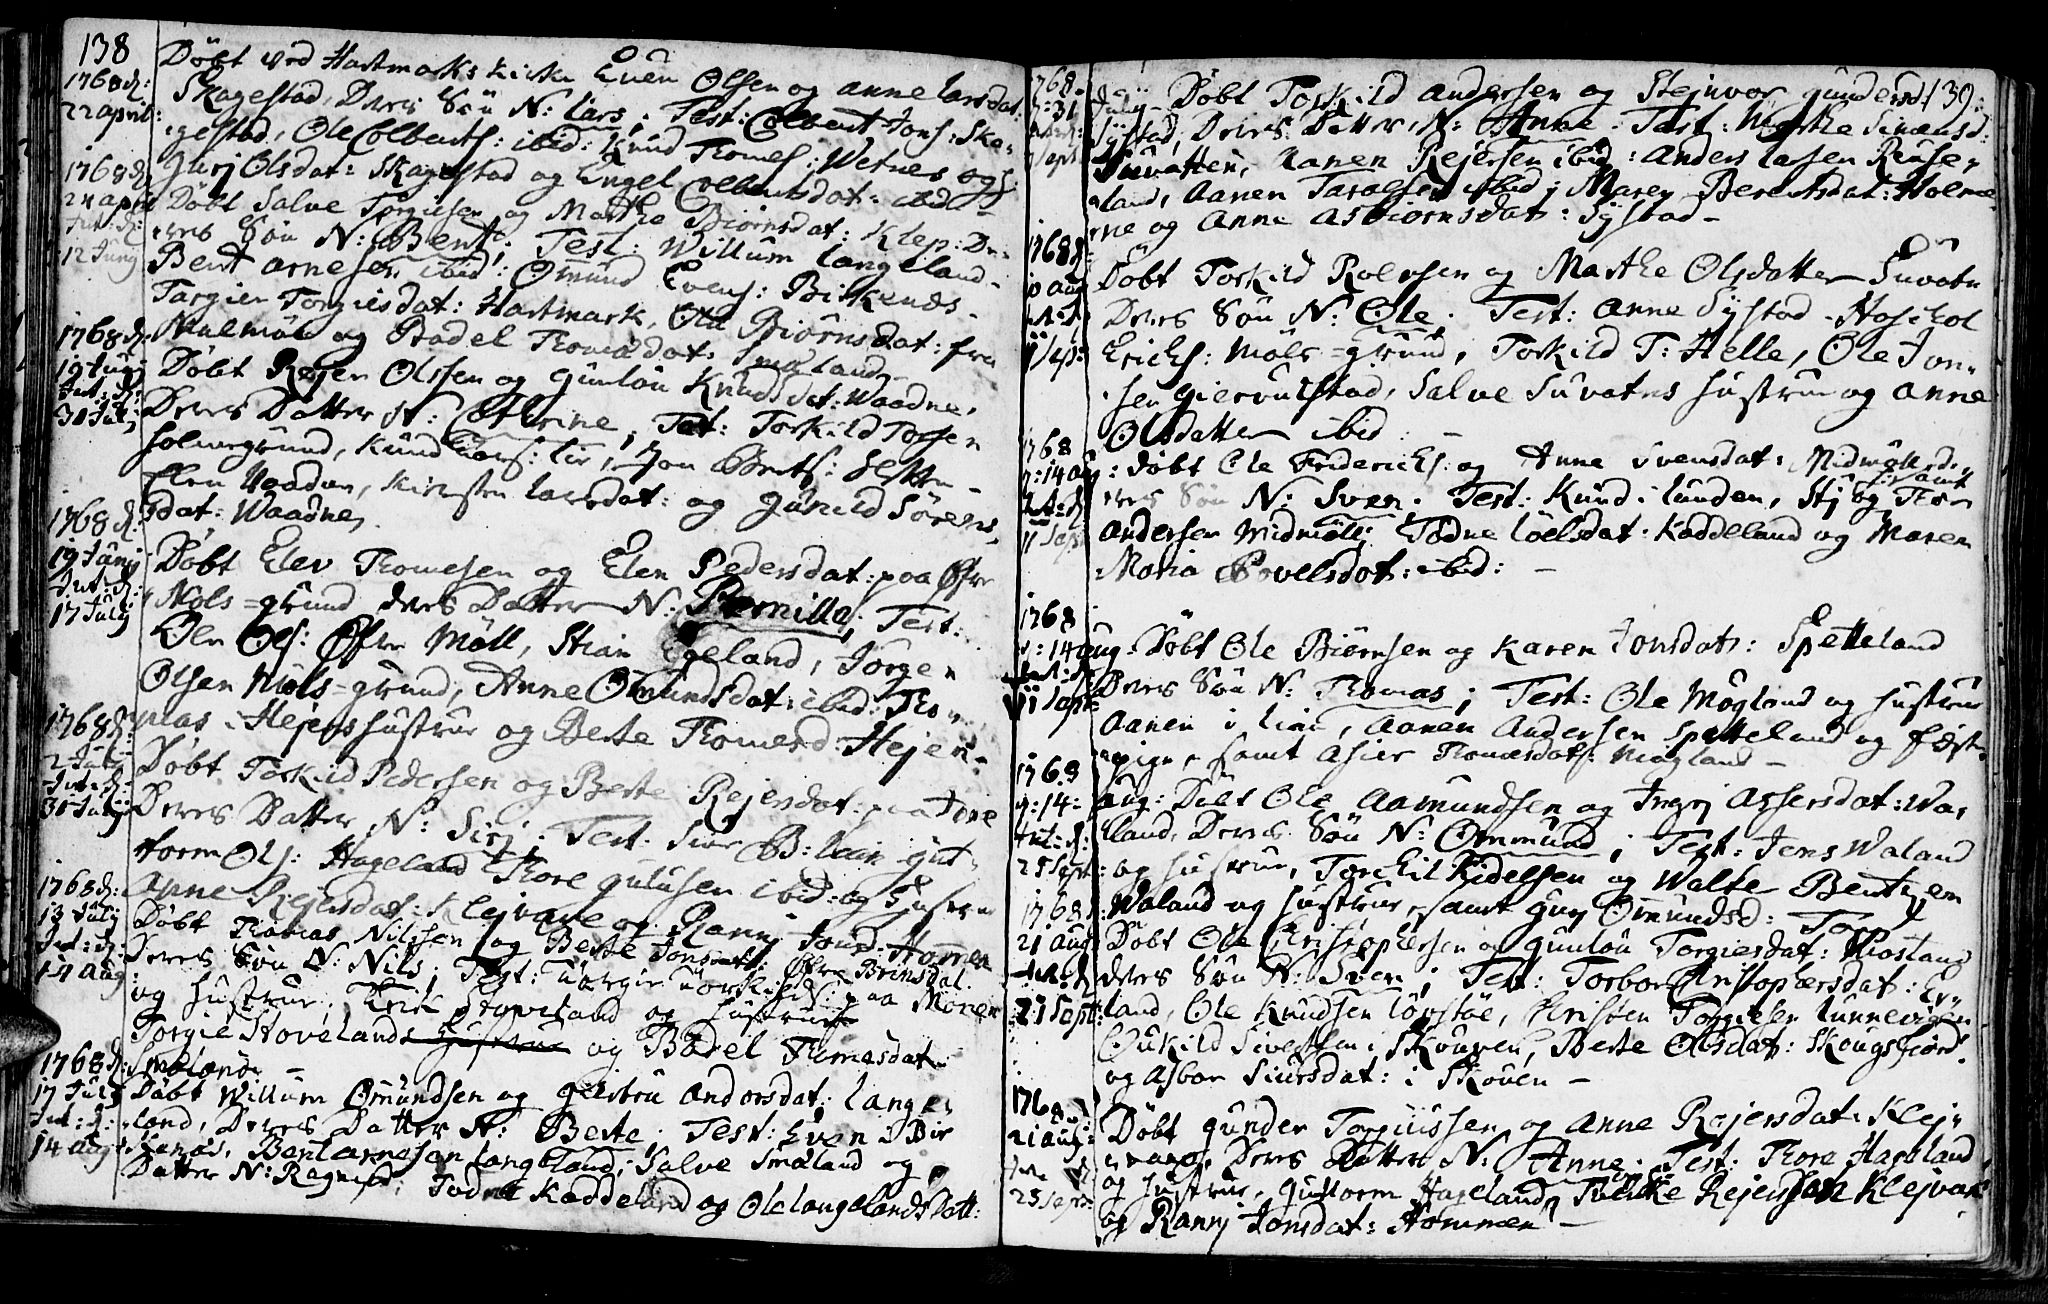 138
1768 d:
22 april:
Döbt ved Hartmarks kirke Even Olsen og anne larsdat:
Skagestad, Deres Sön N: Lars; Test: Colbent Jons: Ska-
gestad, Ole Colbents: ibid: Knud Tomes: Wetnes og
Gurj Olsdat: Skagestad og Engel Colbentsdat: ibid –
1768 d:
24 april
Int: d:
12 Junij
Döbt Salve Torgiesen og Marthe Biörnsdat: Klep: De-
res Sön N: Bent; Test: Willum langeland.
Bent arnesen ibid: Omund Evens: Birkenes.
Targier Torgiesdat: Hartmark, Ola Biörnsdat: fra
Malmöe og Bodel Tomasdat: Smaland
1768 d:
19 Junij
Int: d:
30 Julj
Döbt Rejer Olssen og Gunlou Knudsdat: Waadne.
Deres Datter N: Cathrine; Test: Torkild Torsen
holmegrund, Knud Lars: lie, Jon Bents:
Elen Waadne, kirsten larsdat: og Gunild Sörens
dat: Waadne,
1768 d:
19 Junij
Int: d:
17 Julij
Döbt Elev Tomesen og Elen Pedersdat: paa Öfre
Mols=grund deres Datter N: Pernilla; Test:
Ole Ols: Öfre Möll, Stian Egeland, Jörgen
Olsen Möls=grund, Anne Omundsdat: ibid: To-
mas Hejens hustrue og Berte Tomesd: Hejen.
1768 d:
2 Julij
Int: d:
30 Julij
Döbt Torkild Pedersen og Berte Rejersdat: paa
Deres Datter N: Sirj; Test: Siur B: lien Gut-
torm Ols: Hageland Tore gulusen ibid: og Hustrue
Anne Rejersdat: Klejvane og Rannj Jonsd: Homen
1768 d:
13 Julij
Int: d:
14 Aug
Döbt Tomas Nilssen og Berte Jonsdat: Öfre Brinsdal
Deres Sön N: Nils; Test: paa Monen
og Hustrue, Erik Stoveland og Hustrue
Torgie Hovelands og Badel Tomasdat
Smeland –
1768 d:
17 Julij
Int: d:
14 Aug
Döbt Willum Omundsen og Giertru andorsdat; lange-
land, Deres Datter N: Berte; Test: Even Bir
Kenes, Bent arnesen langeland; Salve Smaland og
Datter N: Ragnild; Todne Kaddeland og Ole langelands Datt:
139
1768
d: 31 July
Sept
Döbt Torkild andersen og Stejnvor gundersd:
Sÿstad, Deres Datter N: Anne. Test: Marthe Simensd:
Suvatten, Aanen Rejersen ibid: anders larsen Reuse-
land, Aanen Taralsen ibid; Maren Berentsdat: Holme-
rne og Anne asbiörnsdat: Sÿstad –
1768 d
aug
Int: d:
11 Sept:
Döbt Torkild Roersen og Marthe Olsdatter Suvatn
Deres Sön N: Ole. Test: anne Sÿstad. Hoskol
Ericks: Möls=grund, Torkild T: Helle, Ole Jon-
sen Giervulstad, Salve Suvatns Hustrue og anne
Olsdatter ibid. –
1768
d: 14 aug:
Int: d
11 Sept
döbt Ole Fridericks: og Anne Svensdat: Midmöll, de-
res Sön N: Sven; Test: Knud i lunden, Stj og Tor
andersen Midmöll; samt Todne loelsdat: Kaddeland og Maren
Maria Povelsdat: ibid: –
1768
d: 14 aug:
Int: d:
11 Sept
Döbt Ole Biörnsen og Karen Jonsdat: Spetteland
Deres Sön N: Tomas; Test: Ole Mögland og hustrue
Aanen i lien, Aanen Andersen Spetteland og fæste-
pige, samt Asier Tomasdat: Mögland –
1768
d: 14:
Int: d:
25 Sept:
Aug: Döbt Ole Aamundsen og Ingej Assersdat: Wa-
land, Deres Sön N: Ommund; Test: Jens Waland
og hustrue, Torckil Kidelsen og Walte Bentsen
Waland og hustrue, samt Gurj Omundsd:
1768 d:
21 Aug
Int: d:
25 Sept:
Döbt Ole Christophersen og Gunlou Torgiesdat:
deres Sön N: Sven; Test: Torbor Christophersdat: Ey-
land, Ole Knudsen lövstöe, Christen Torgiesen lunnevigen
Eukild Sivertsen i Skouen, Berte Olsdat: Skougsfiord
og Asbor Siursdat: i Skouen –
1768
21 Aug:
Int: d
25 Sept:
Döbt gunder Torgiussen og anne Rejersdat: Klej-
vane, Deres Datter N: Anne. Test: Tore Hageland
og Hustrue, Guttorm Hageland, Rejersen Klejvan
og Rannj Jonsdat: Hommen –